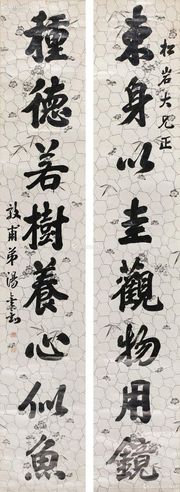 松岩大兄正
束身以圭觀物用鏡
種德若樹養心似魚
敦甫弟湯金釗